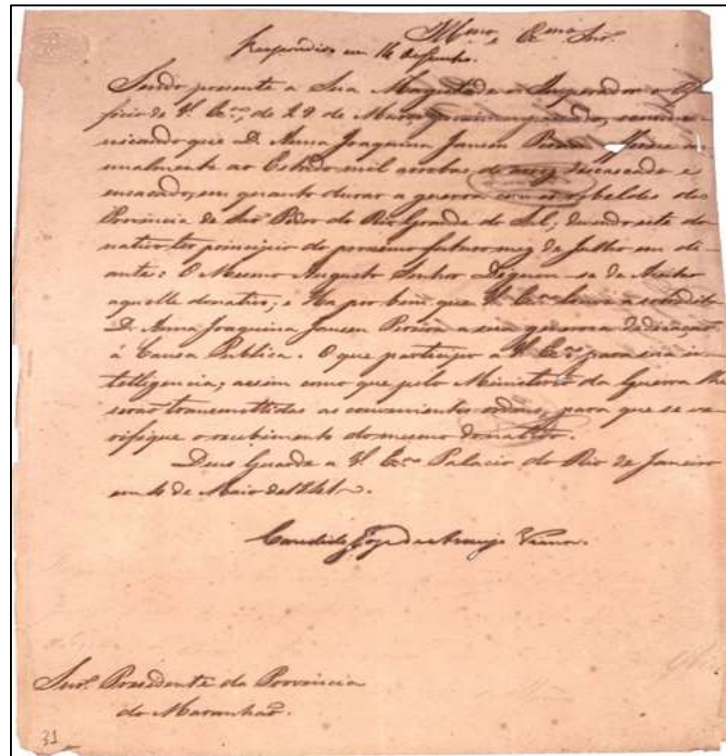 Illmo. e Exmo. Snr.
Respondido em 16 de Junho.
Sendo presente a Sua Magestade o Imperador o Of-
ficio de V. Exa., de 29 de Março proximo passado, commu-
nicando que D. Anna Joaquina Jansen Pereira offerece a-
nnualmente ao Estado mil arrobas de arroz descascado e
ensacado, em quanto durar a guerra com os rebeldes da
Provincia de São Pedro do Rio Grande do Sul; devendo este do-
nativo ter principio do proximo futuro mez de Julho em di-
ante: O Mesmo Augusto Senhor Dignou-se de Acceitar
aquelle donativo; e Ha por bem que V. Exa. louve a sobredita
D. Anna Joaquina Jansen Pereira a sua generosa dedicação
á Causa Publica. O que participo a V. Exa. para sua in-
telligencia; assim como que pelo Ministerio da Guerra lhe
serão transmittidas as convenientes ordens, para que se ve-
rifique o recebimento do mesmo donativo.
Deus Guarde a V. Exa. Palacio do Rio de Janeiro
em de Maio de 1841.
Candido José de Araujo Vianna.
Snr. Presidente da Provincia
do Maranhão.
31